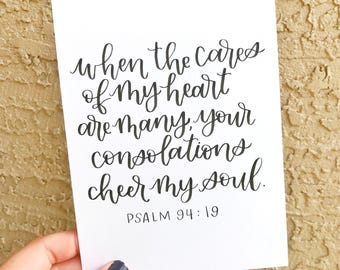 when the cares
of my heart
are many, your
consolations
cheer my soul.
PSALM 94:19